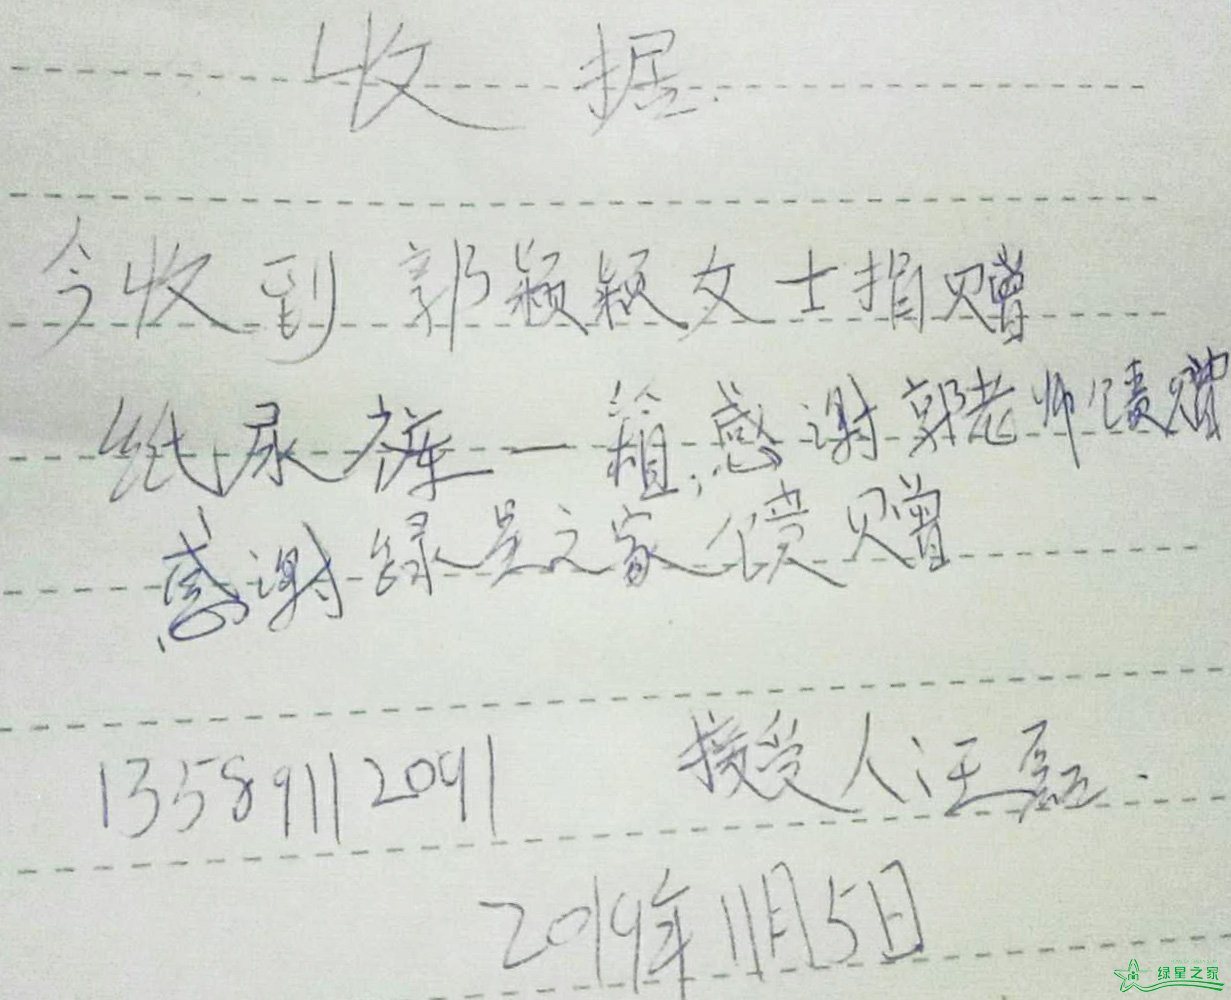 收据
今收到郭颖颖女士捐赠
纸尿裤一箱,感谢郭老师馈赠
感谢绿星之家馈赠
13589112091 接受人:王磊.
2019年11月5日
绿星之家